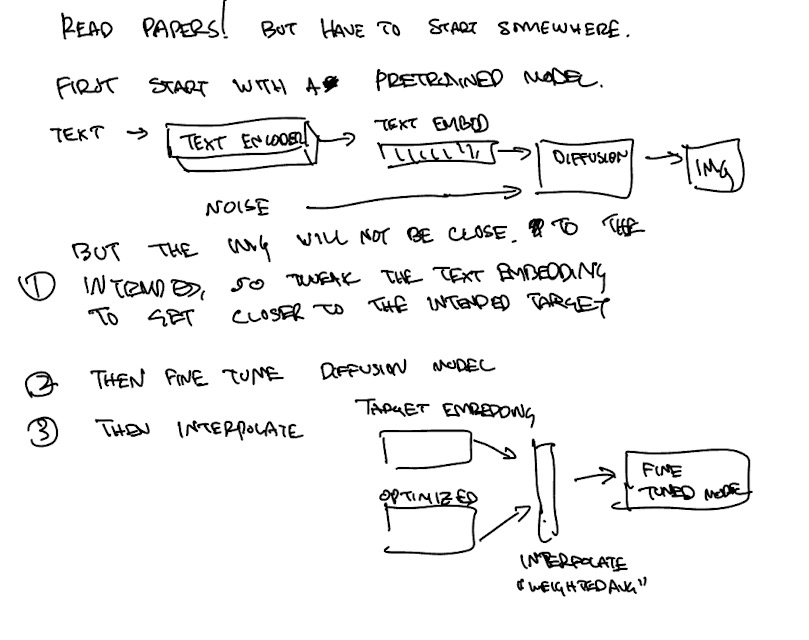 READ PAPERS! BUT HAVE TO START SOMEWHERE.
FIRST START WITH A PRETRAINED MODEL.
TEXT → TEXT ENCODER → TEXT EMBED → DIFFUSION → IMG
NOISE
BUT THE IMG WILL NOT BE CLOSE. TO THE
① INTENDED, SO TWEAK THE TEXT EMBEDDING
TO GET CLOSER TO THE INTENDED TARGET
② THEN FINE TUNE DIFFUSION MODEL
③ THEN INTERPOLATE
TARGET EMBEDDING
OPTIMIZED
FINE
TUNED MODEL
INTERPOLATE
"WEIGHTED AVG"